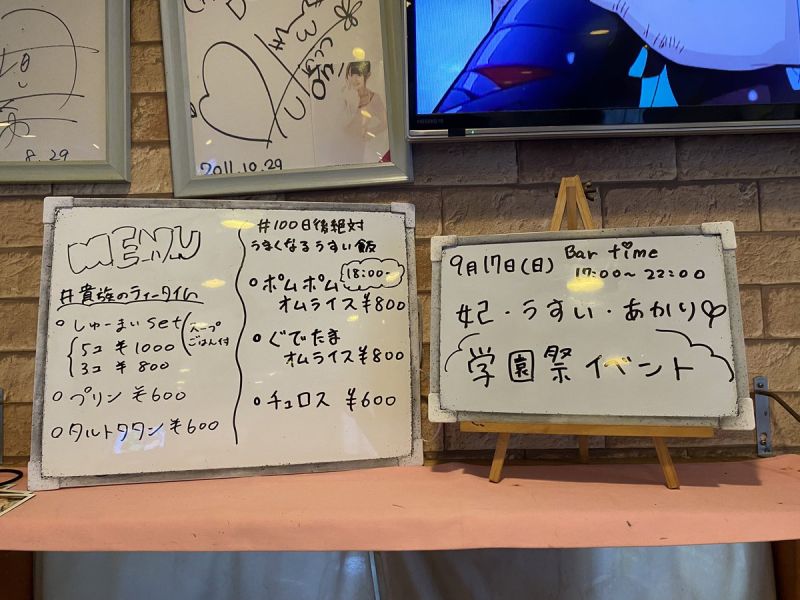 8.29
2011.10.29
MENU
#貴族のティータイム
○しゅーまいset
5コ ¥1000
3コ ¥800
スープ
ごはん付
○プリン ¥600
○タルトタタン ¥600
#100日後絶対
うまくなるうすい飯
18:00~
○ポムポム
オムライス¥800
○ぐでたま
オムライス¥800
○チュロス ¥600
9月17日(日) Bar time
17:00~22:00
妃・うすい・あかり♡
学園祭イベント